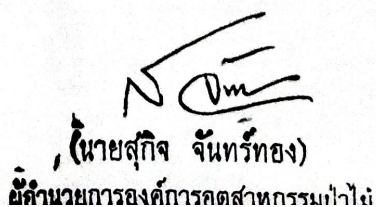 (นายสุกิจ จันทร์ทอง)
ผู้อำนวยการองค์การอุตสาหกรรมป่าไม้